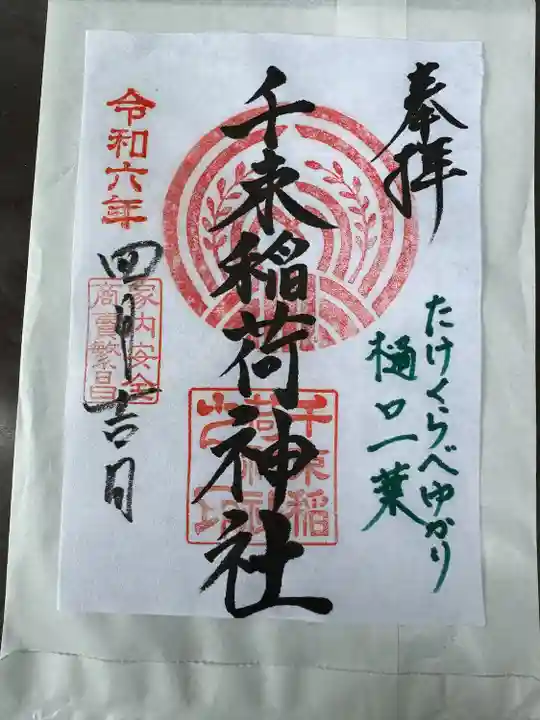 奉拝
たけくらべゆかり
樋口一葉
千束稲荷神社
千束稲
荷神社
令和六年
四月吉日
家内安全
商賣繁昌